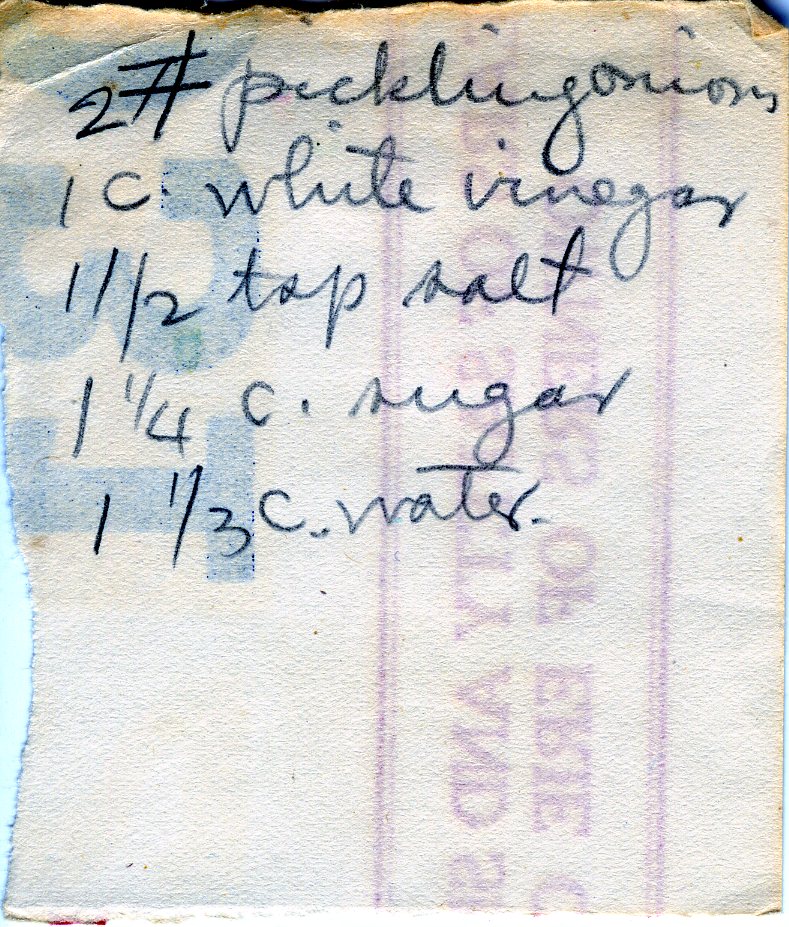 2# pickling onions
1 c. white vinegar
1 1/2 tsp salt
1 1/4 c. sugar
1 1/3 c. water.
OF ERIE
TY AND